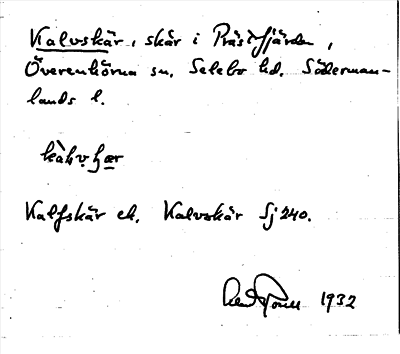 Kalvskär, skär i Prästfjärden,
Överenhörna sn. Selebo hd. Söderman-
lands l.
Kalfskär ek. Kalvskär Sj 240.
1932